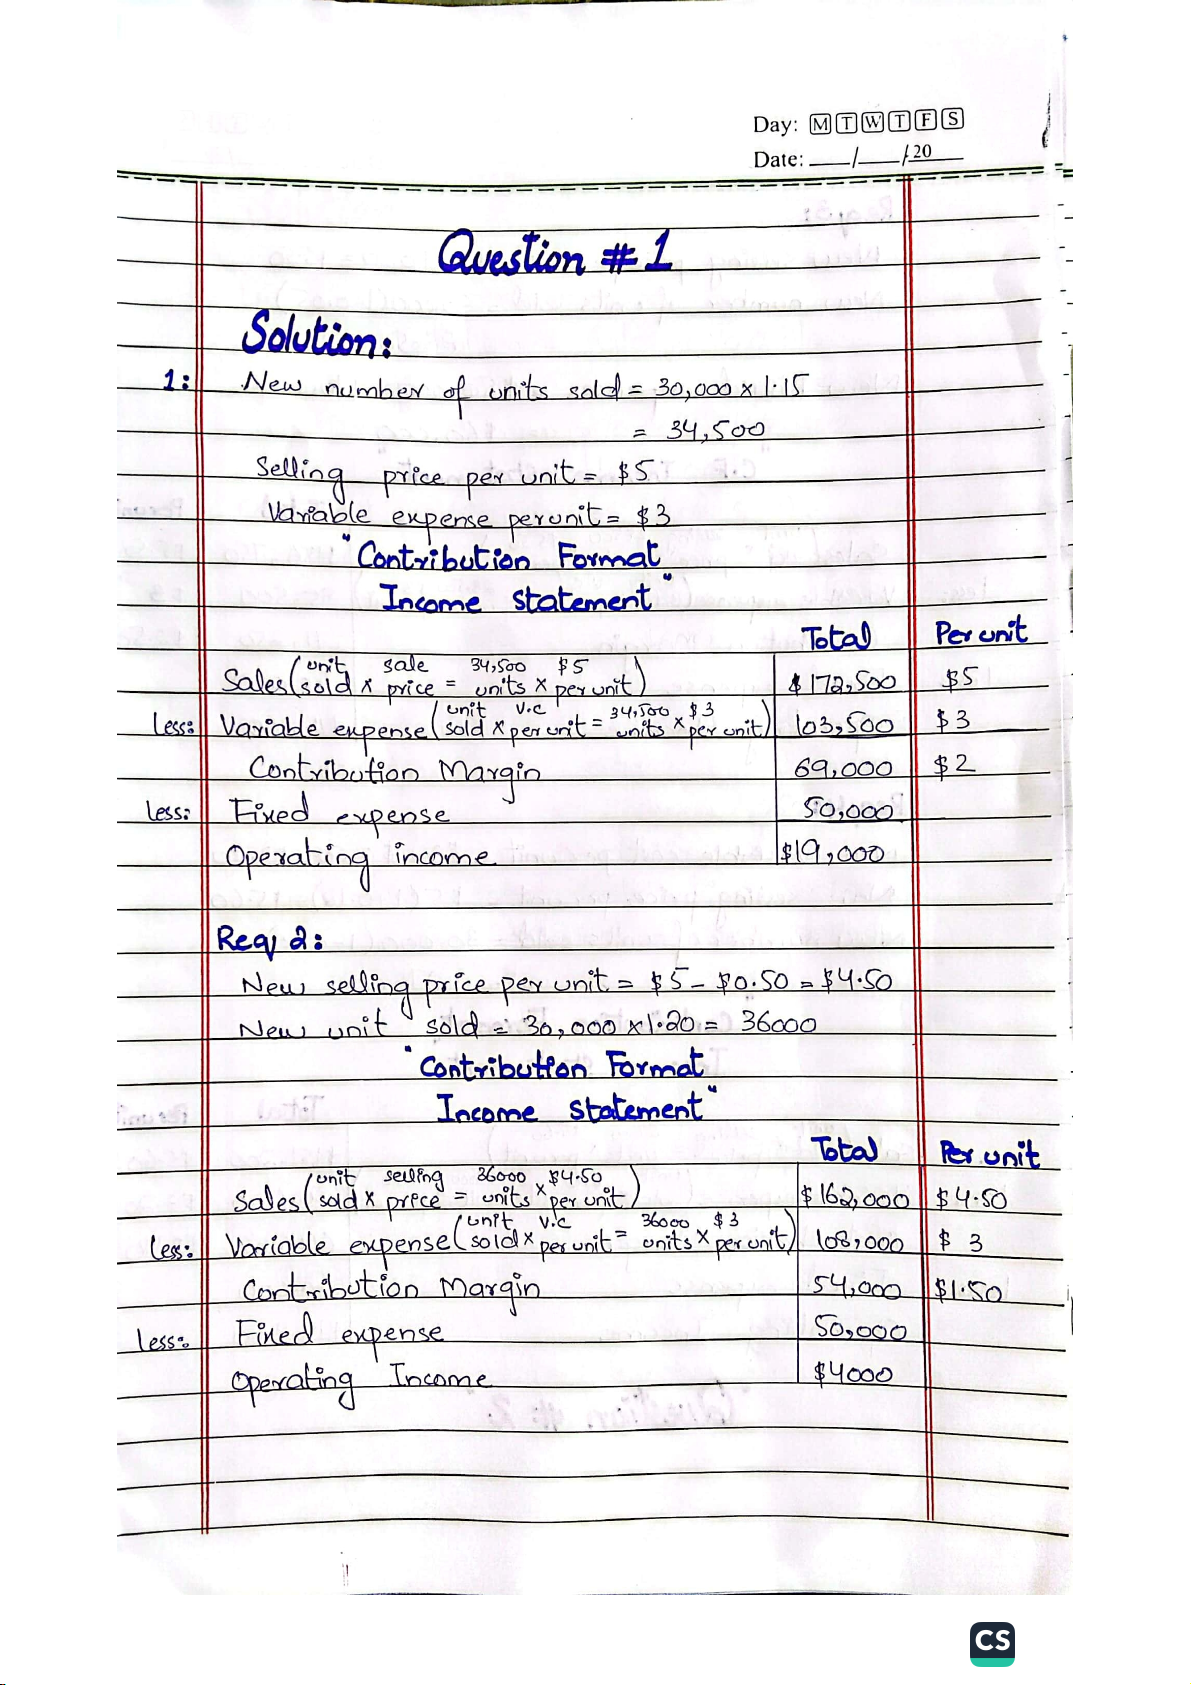 Day: M T W T F S
Date: ___/___/20___
Question # 1
Solution:
1: New number of units sold = 30,000 x 1.15
= 34,500
Selling price per unit = $5
Variable expense per unit = $3
"Contribution Format
Income statement"
Total Per unit
Sales (unit sold x sale price = 34,500 units x $5 per unit) $172,500 $5
less: Variable expense (unit sold x v.c per unit = 34,500 units x $3 per unit) 103,500 $3
Contribution Margin 69,000 $2
less: Fixed expense 50,000
Operating income $19,000
Req 2:
New selling price per unit = $5 - $0.50 = $4.50
New unit sold = 30,000 x 1.20 = 36000
"Contribution Format
Income statement"
Total Per unit
Sales (unit sold x selling price = 36000 units x $4.50 per unit) $162,000 $4.50
less: Variable expense (unit sold x v.c per unit = 36000 units x $3 per unit) 108,000 $3
Contribution Margin 54,000 $1.50
less: Fixed expense 50,000
Operating Income $4000
CS